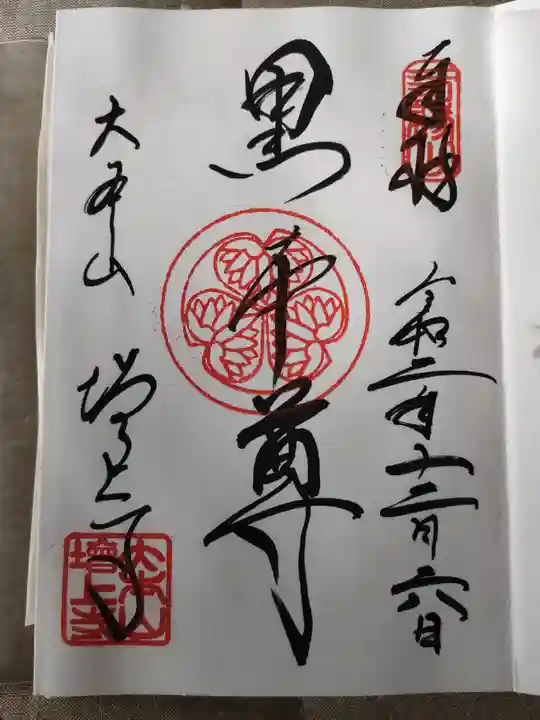 奉拝
令和二年十二月六日
黒本尊
大本山 増上寺
大本山
増上寺